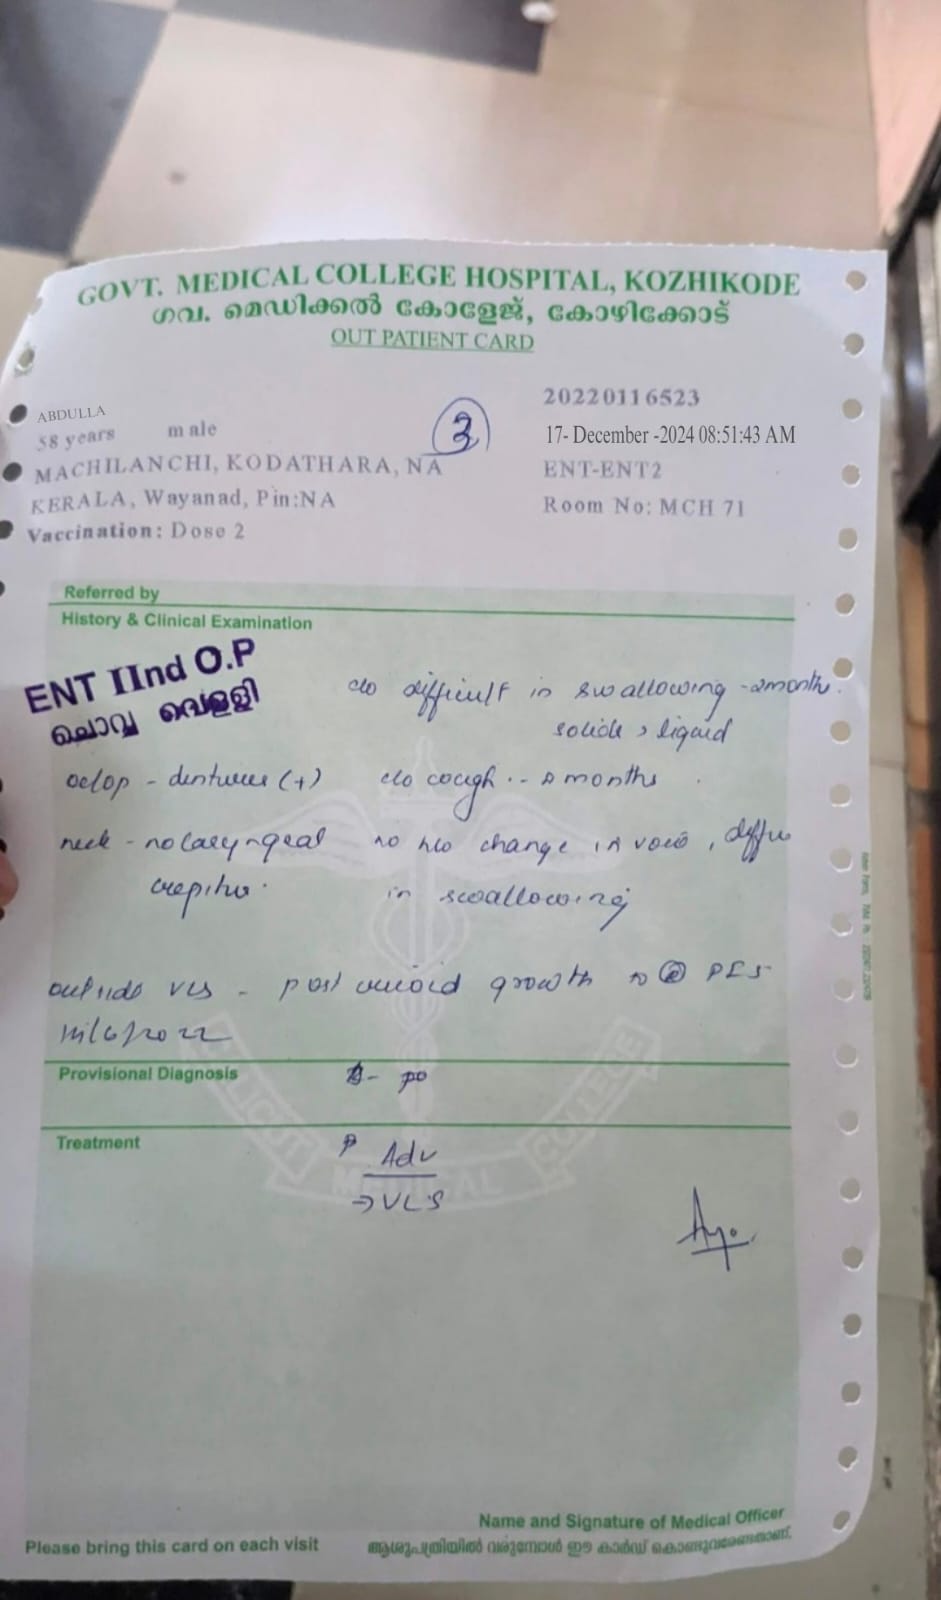 GOVT. MEDICAL COLLEGE HOSPITAL, KOZHIKODE
ഗവ. മെഡിക്കൽ കോളേജ്, കോഴിക്കോട്
OUT PATIENT CARD
ABDULLA
58 years male
MACHILANCHI, KODATHARA, NA
KERALA, Wayanad, Pin:NA
Vaccination: Dose 2
3
20220116523
17- December -2024 08:51:43 AM
ENT-ENT2
Room No: MCH 71
Referred by
History & Clinical Examination
ENT IInd O.P
ചൊവ്വ വെള്ളി
c/o difficult in swallowing - 2month
solids > liquid
oc/op - dentures (+) c/o cough - 2 months
neck - no laryngeal no h/o change in voice,
crepitus. in swallowing
outside VLS - post cricoid growth PFS
Provisional Diagnosis
Treatment
Adv
→ VLS
Name and Signature of Medical Officer
Please bring this card on each visit
ആശുപത്രിയിൽ വരുമ്പോൾ ഈ കാർഡ് കൊണ്ടുവരേണ്ടതാണ്.